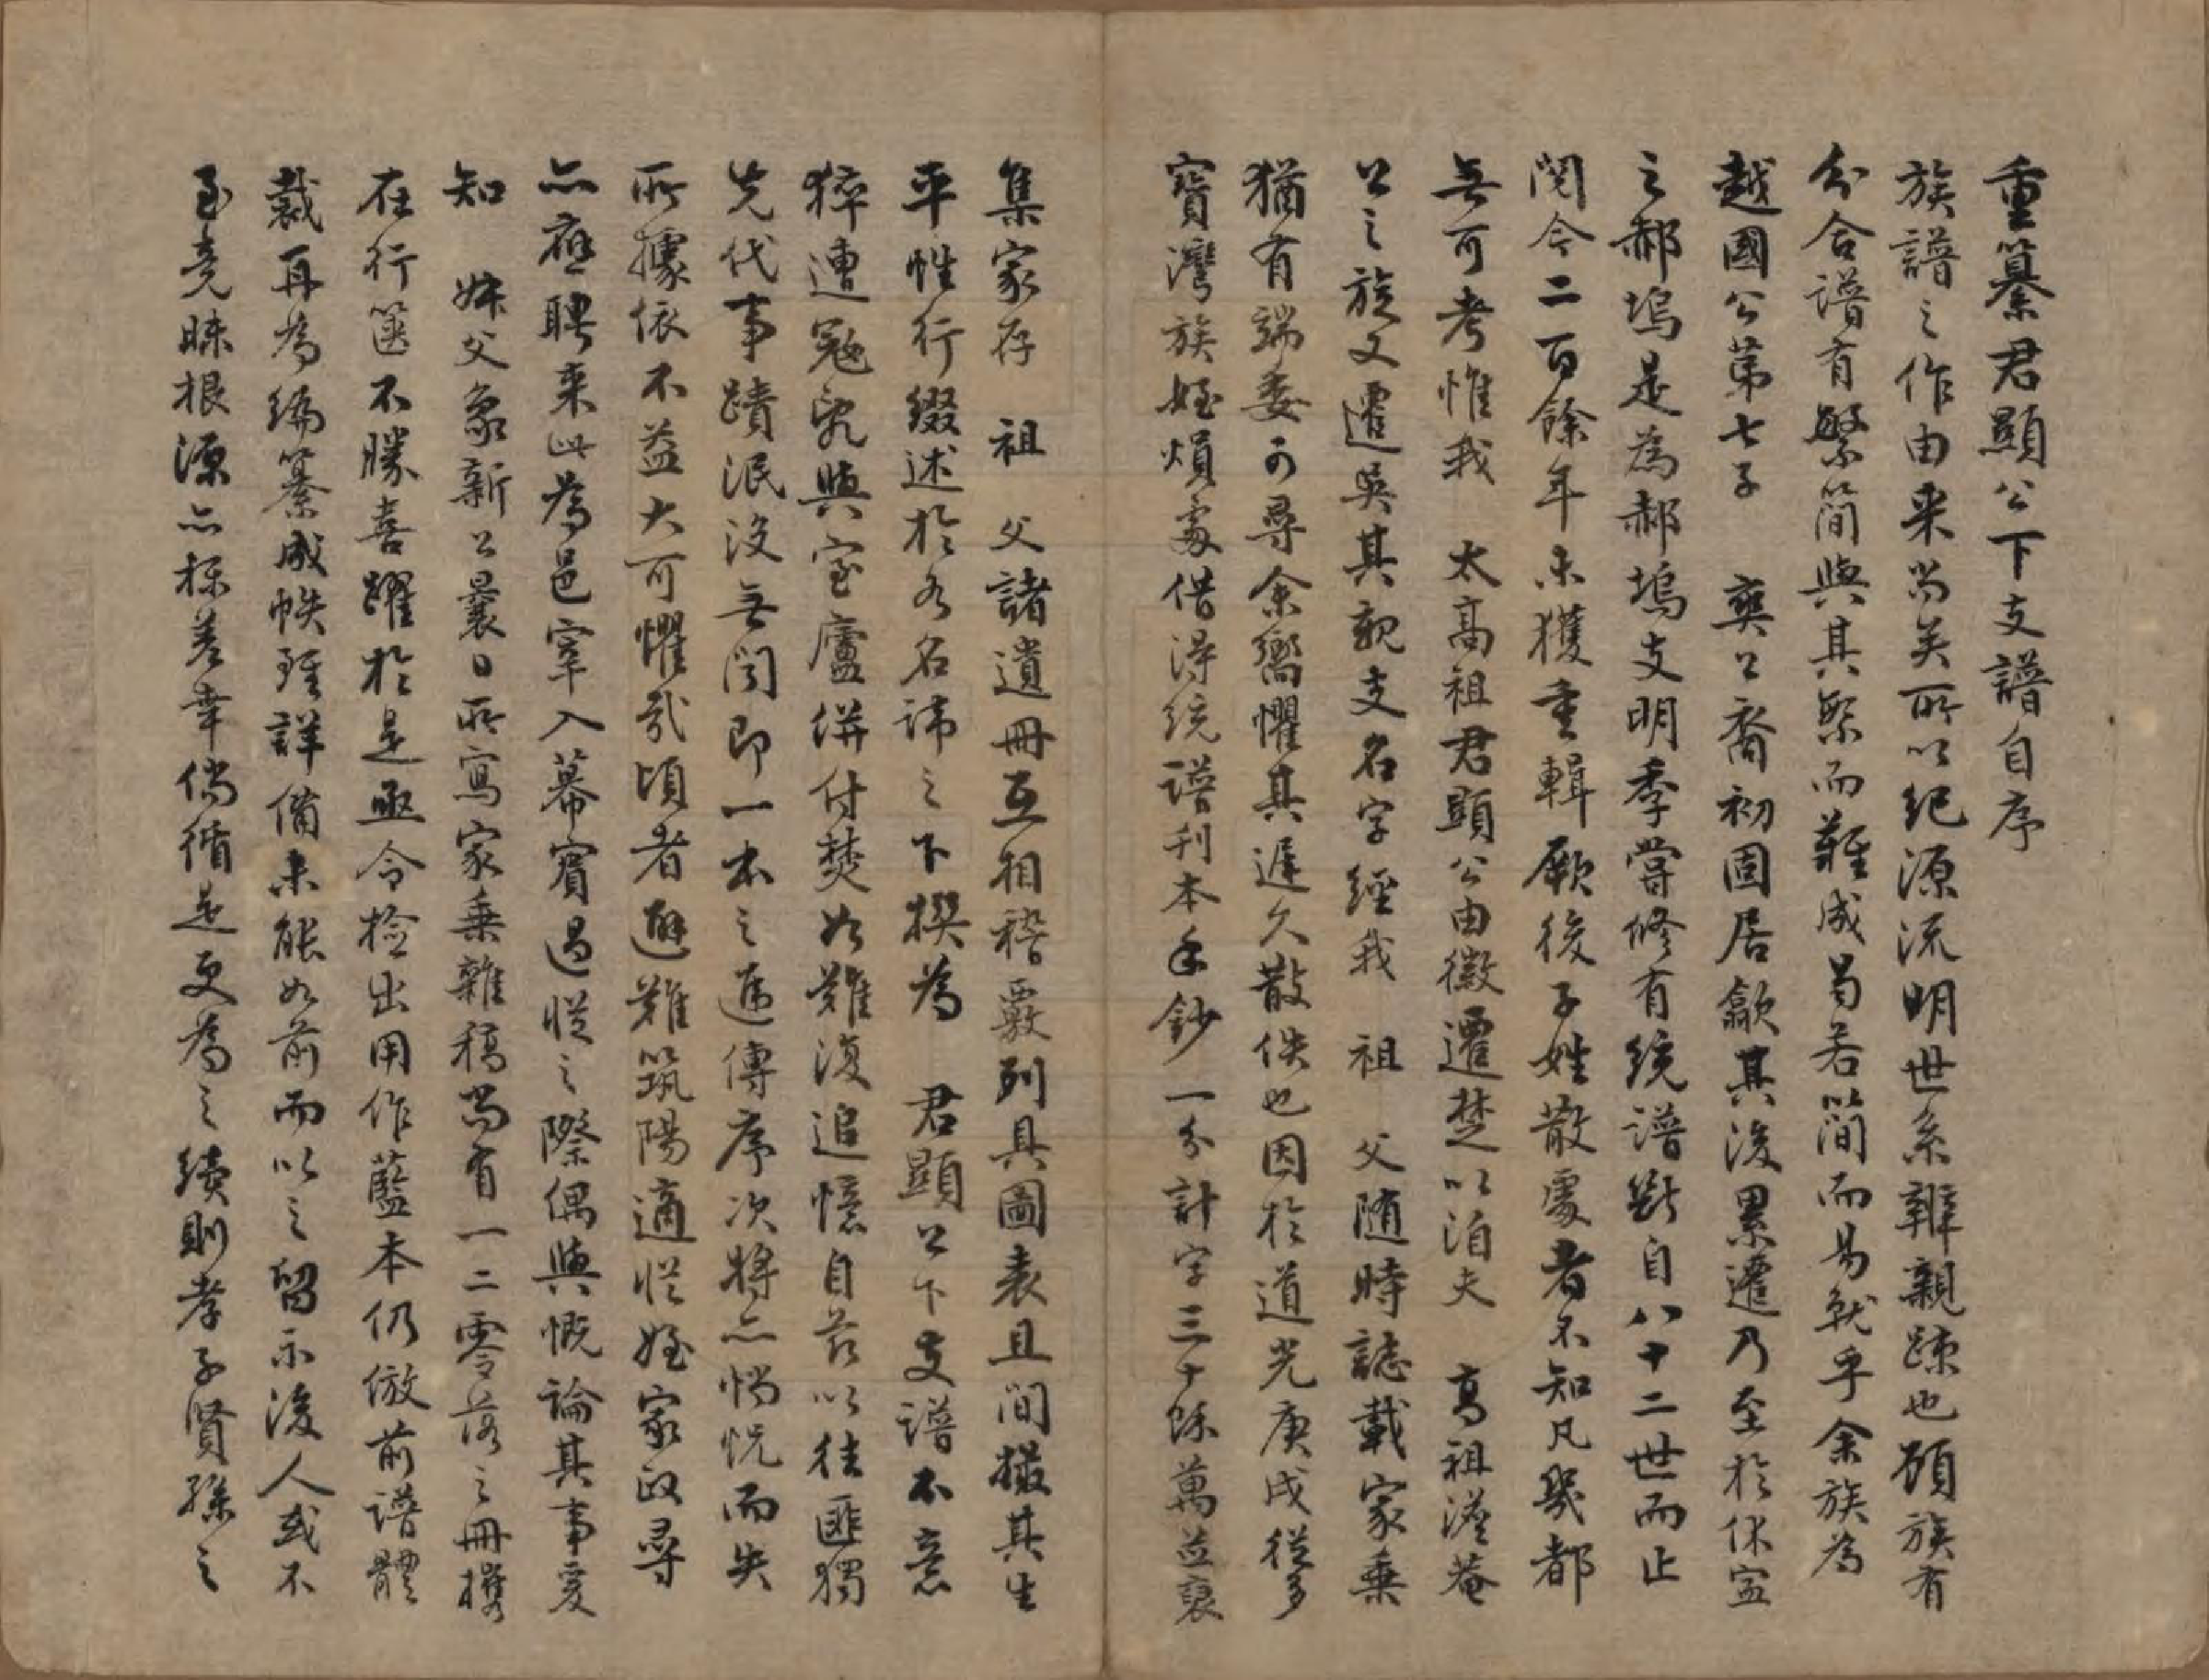 重纂君顯公下支譜自序
族譜之作由来尚矣所以紀源流明世系辨親疎也顧族有
分合譜有繁簡與其繁而難成曷若簡而易就乎余族為
越國公第七子　奭公裔初固居歙其後累遷乃至於休寍
之郝塢是為郝塢支明季嘗修有統譜斷自八十二世而止
閱今二百餘年未獲重輯厥後子姓散處者不知凡幾都
無可考惟我　太高祖君顯公由徽遷楚以洎夫　高祖濙菴
公之族又遷吳其親支名字經我　祖　父随時誌載家乗
猶有端委可尋余嚮懼其遲久散佚也因於道光庚戌從
寳灣族姪煩處借得統譜刊本手鈔一分計字三十餘萬並裒
集家存　祖　父諸遺冊互相稽覈列具圖表且間掇其生
平性行綴述於各名諱之下撰為　君顯公下支譜不意
猝遭冦氛與室廬併付焚如難復追憶自茲以往匪獨
先代事蹟泯沒無聞即一本之遞傳序次將亦惝怳而失
所據依不益大可懼哉頃者避難筑陽適從姪家政尋
亦應聘来此為邑宰入幕賓過從之際偶與慨論其事爰
知　妹父象新公曩日所寫家乗雜稿尚有一二零落之冊攜
在行篋不勝喜躍於是亟令檢出用作藍本仍倣前譜體
裁再為編纂成帙雖詳備未能如前而以之留示後人或不
至竟昧根源亦樑差幸倘循是更為之續則孝子賢孫之